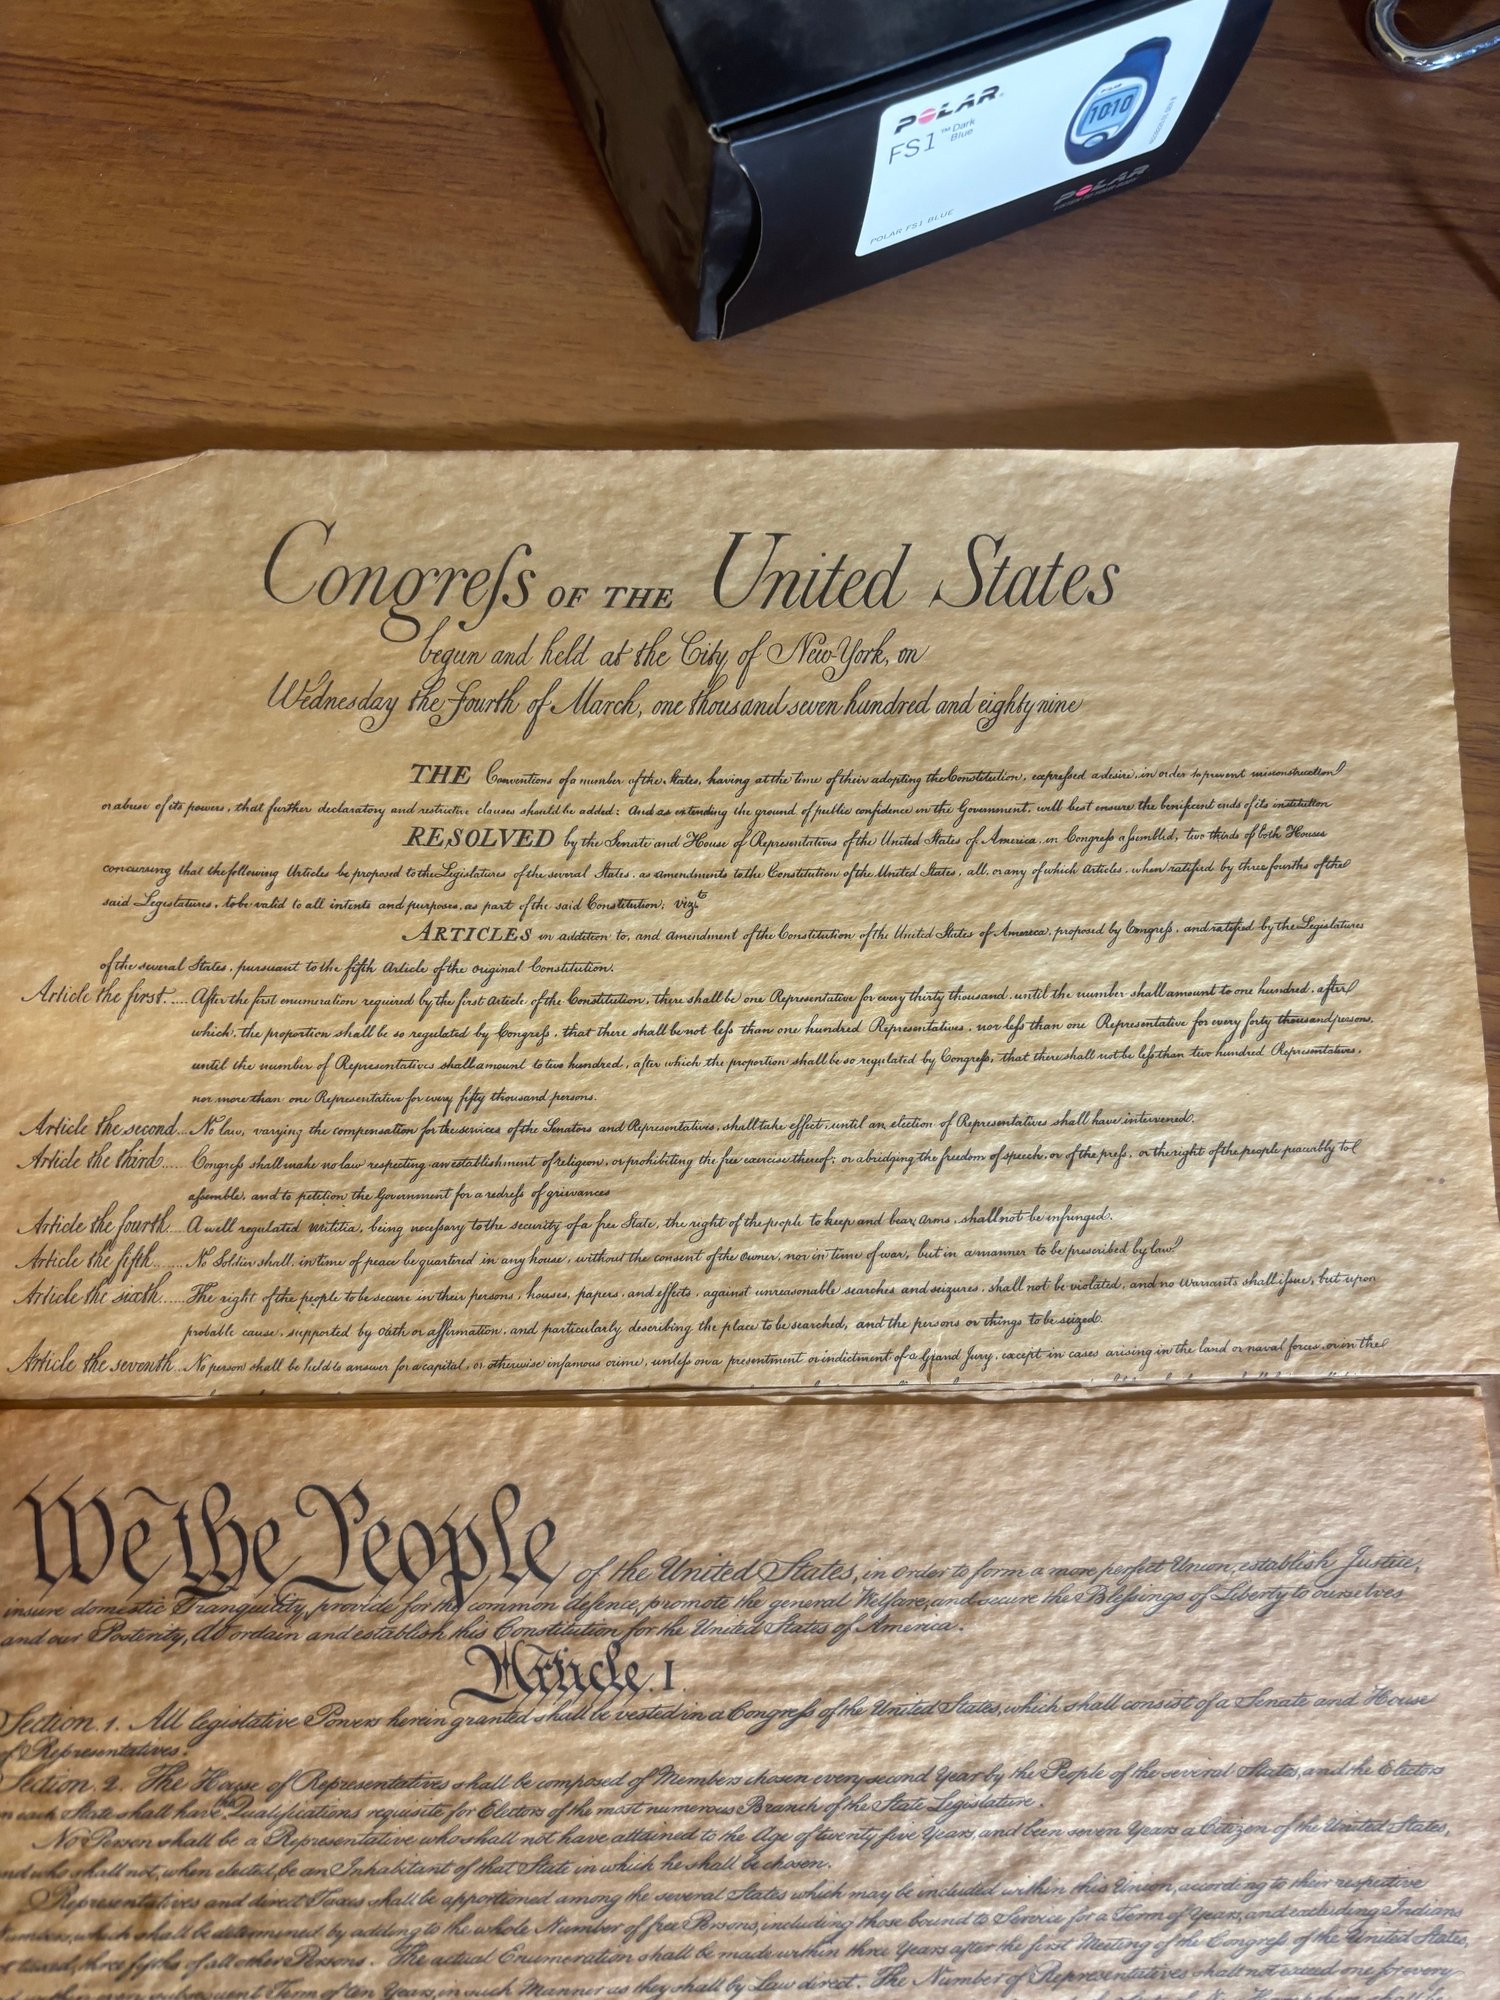 POLAR
FS1™ Dark
Blue
10:10
POLAR FS1 BLUE
POLAR
LISTEN TO YOUR BODY
Congreſs OF THE United States
begun and held at the City of New-York, on
Wednesday the Fourth of March, one thousand seven hundred and eighty nine
THE Conventions of a number of the States, having at the time of their adopting the Constitution, expreſsed a desire, in order to prevent misconstruction
or abuse of its powers, that further declaratory and restrictive clauses should be added: And as extending the ground of public confidence in the Government, will best ensure the beneficent ends of its institution
RESOLVED by the Senate and House of Representatives of the United States of America, in Congreſs aſsembled, two thirds of both Houses
concurring that the following Articles be proposed to the Legislatures of the several States, as amendments to the Constitution of the United States, all, or any of which Articles, when ratified by three fourths of the
said Legislatures, to be valid to all intents and purposes, as part of the said Constitution; vizt
ARTICLES in addition to, and Amendment of the Constitution of the United States of America, proposed by Congreſs, and ratified by the Legislatures
of the several States, pursuant to the fifth Article of the original Constitution.
Article the first..... After the first enumeration required by the first Article of the Constitution, there shall be one Representative for every thirty thousand, until the number shall amount to one hundred, after
which, the proportion shall be so regulated by Congreſs, that there shall be not leſs than one hundred Representatives, nor leſs than one Representative for every forty thousand persons,
until the number of Representatives shall amount to two hundred, after which the proportion shall be so regulated by Congreſs, that there shall not be leſs than two hundred Representatives,
nor more than one Representative for every fifty thousand persons.
Article the second... No law, varying the compensation for the services of the Senators and Representatives, shall take effect, until an election of Representatives shall have intervened.
Article the third..... Congreſs shall make no law respecting an establishment of religion, or prohibiting the free exercise thereof; or abridging the freedom of speech, or of the preſs, or the right of the people peaceably to
aſsemble, and to petition the Government for a redreſs of grievances
Article the fourth.... A well regulated Militia, being neceſsary to the security of a free State, the right of the people to keep and bear Arms, shall not be infringed.
Article the fifth...... No Soldier shall, in time of peace be quartered in any house, without the consent of the Owner, nor in time of war, but in a manner to be prescribed by law.
Article the sixth..... The right of the people to be secure in their persons, houses, papers, and effects, against unreasonable searches and seizures, shall not be violated, and no Warrants shall iſsue, but upon
probable cause, supported by Oath or affirmation, and particularly describing the place to be searched, and the persons or things to be seized.
Article the seventh... No person shall be held to answer for a capital, or otherwise infamous crime, unleſs on a presentment or indictment of a Grand Jury, except in cases arising in the land or naval forces, or in the
We the People of the United States, in Order to form a more perfect Union, establish Justice,
insure domestic Tranquility, provide for the common defence, promote the general Welfare, and secure the Bleſsings of Liberty to ourselves
and our Posterity, do ordain and establish this Constitution for the United States of America.
Article. I.
Section. 1. All legislative Powers herein granted shall be vested in a Congreſs of the United States, which shall consist of a Senate and House
of Representatives.
Section. 2. The House of Representatives shall be composed of Members chosen every second Year by the People of the several States, and the Electors
in each State shall have the Qualifications requisite for Electors of the most numerous Branch of the State Legislature.
No Person shall be a Representative who shall not have attained to the Age of twenty five Years, and been seven Years a Citizen of the United States,
and who shall not, when elected, be an Inhabitant of that State in which he shall be chosen.
Representatives and direct Taxes shall be apportioned among the several States which may be included within this Union, according to their respective
Numbers, which shall be determined by adding to the whole Number of free Persons, including those bound to Service for a Term of Years, and excluding Indians
not taxed, three fifths of all other Persons. The actual Enumeration shall be made within three Years after the first Meeting of the Congreſs of the United States,
subsequent Term of ten Years, in such Manner as they shall by Law direct. The Number of Representatives shall not exceed one for every